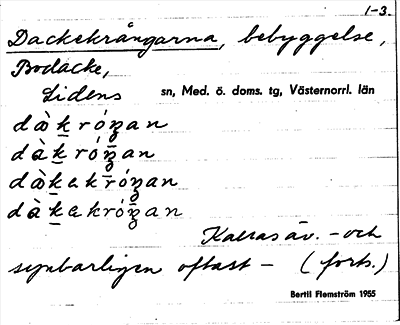 1-3.
Dackekrångarna, bebyggelse,
Bodacke,
Lidens sn, Med. ö. doms. tg, Västernorrl. län
dàkróŋan
dàkróŋan
dàkekróŋan
dàkekróŋan
Kallas äv. - och
synbarligen oftast - (forts.)
Bertil Flemström 1955